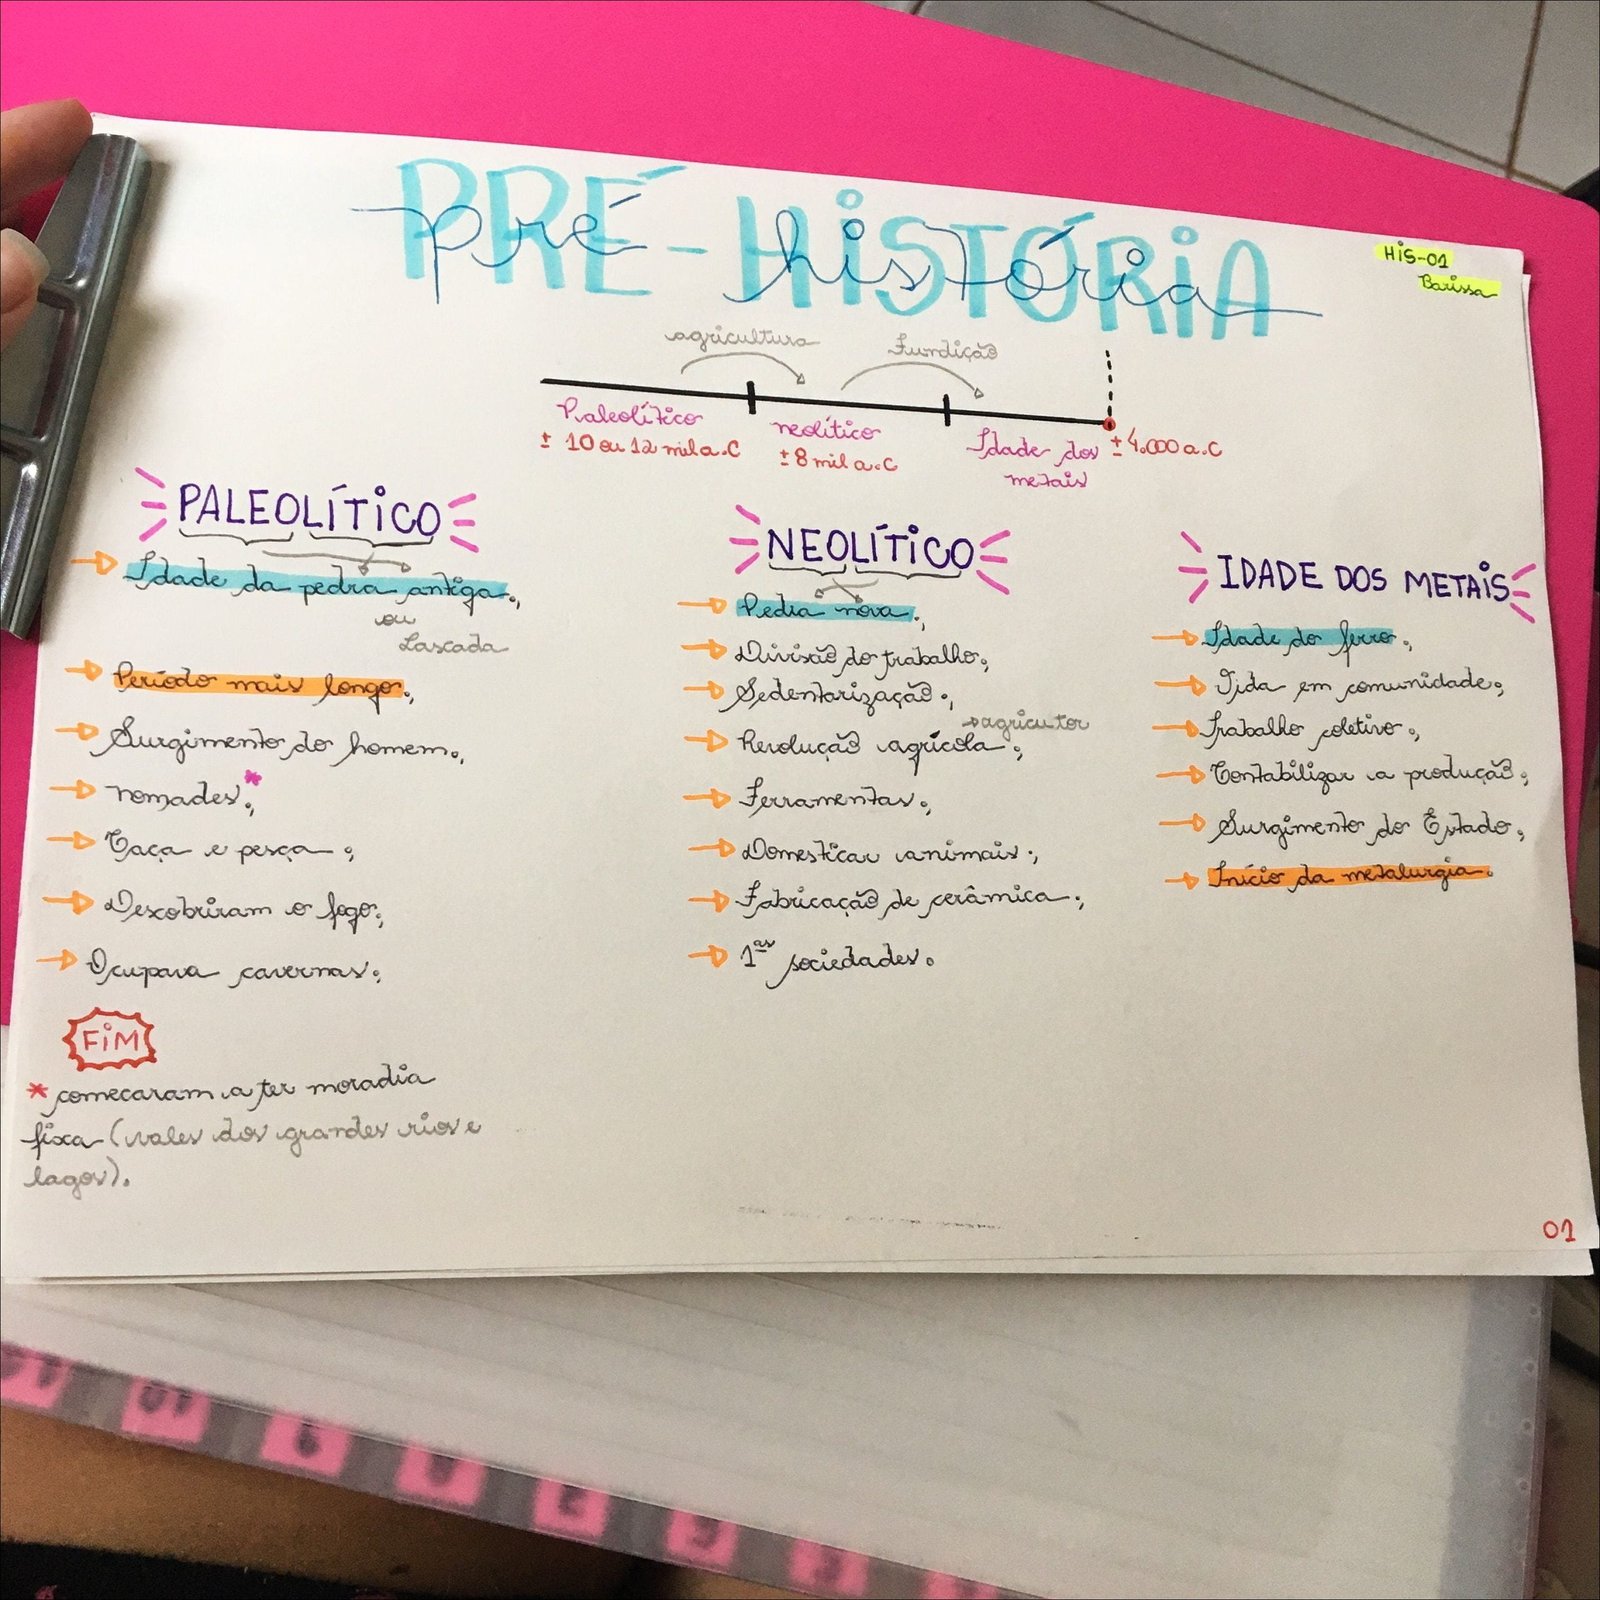 PRÉ-HISTÓRIA
pré história
HIS-01
Barissa
agricultura
Fundição
Paleolítico
± 10 ou 12 mil a.C
neolítico
± 8 mil a.C
Idade dos
metais
± 4.000 a.C
PALEOLÍTICO
Idade da pedra antiga.,
ou
Lascada
Período mais longo.,
Surgimento do homem.,
nomades*.,
Caça e pesca.,
Descobriram o fogo.,
Ocupava cavernas.,
FIM
* comecaram a ter moradia
fixa (vales dos grandes rios e
lagos).
NEOLÍTICO
Pedra nova.,
Divisão do trabalho.,
Sedentarização.,
→agricutor
Revolução agrícola.,
Ferramentas.,
Domesticar animais.,
Fabricação de cerâmica.,
1as sociedades.
IDADE DOS METAIS
Idade do ferro.,
Vida em comunidade.,
Trabalho coletivo.,
Contabilizar a produção.,
Surgimento do Estado.,
Início da metalurgia.
01